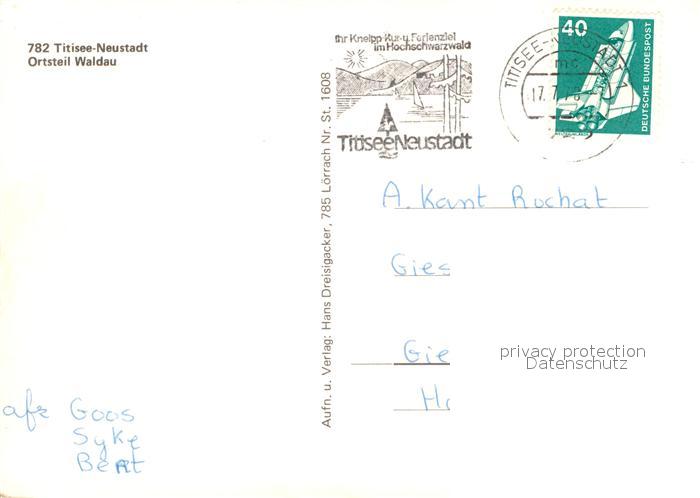 782 Titisee-Neustadt
Ortsteil Waldau
Ihr Kneipp-Kur-u. Ferienziel
im Hochschwarzwald
TitiseeNeustadt
TITISEE-NEUSTADT 1
mc
17.7.76
40
DEUTSCHE BUNDESPOST
Aufn. u. Verlag: Hans Dreisigacker, 785 Lörrach Nr. St. 1608
A. Kant Rochat
Gies
Gie
privacy protection
Datenschutz
afz Goos
Syke
Bert